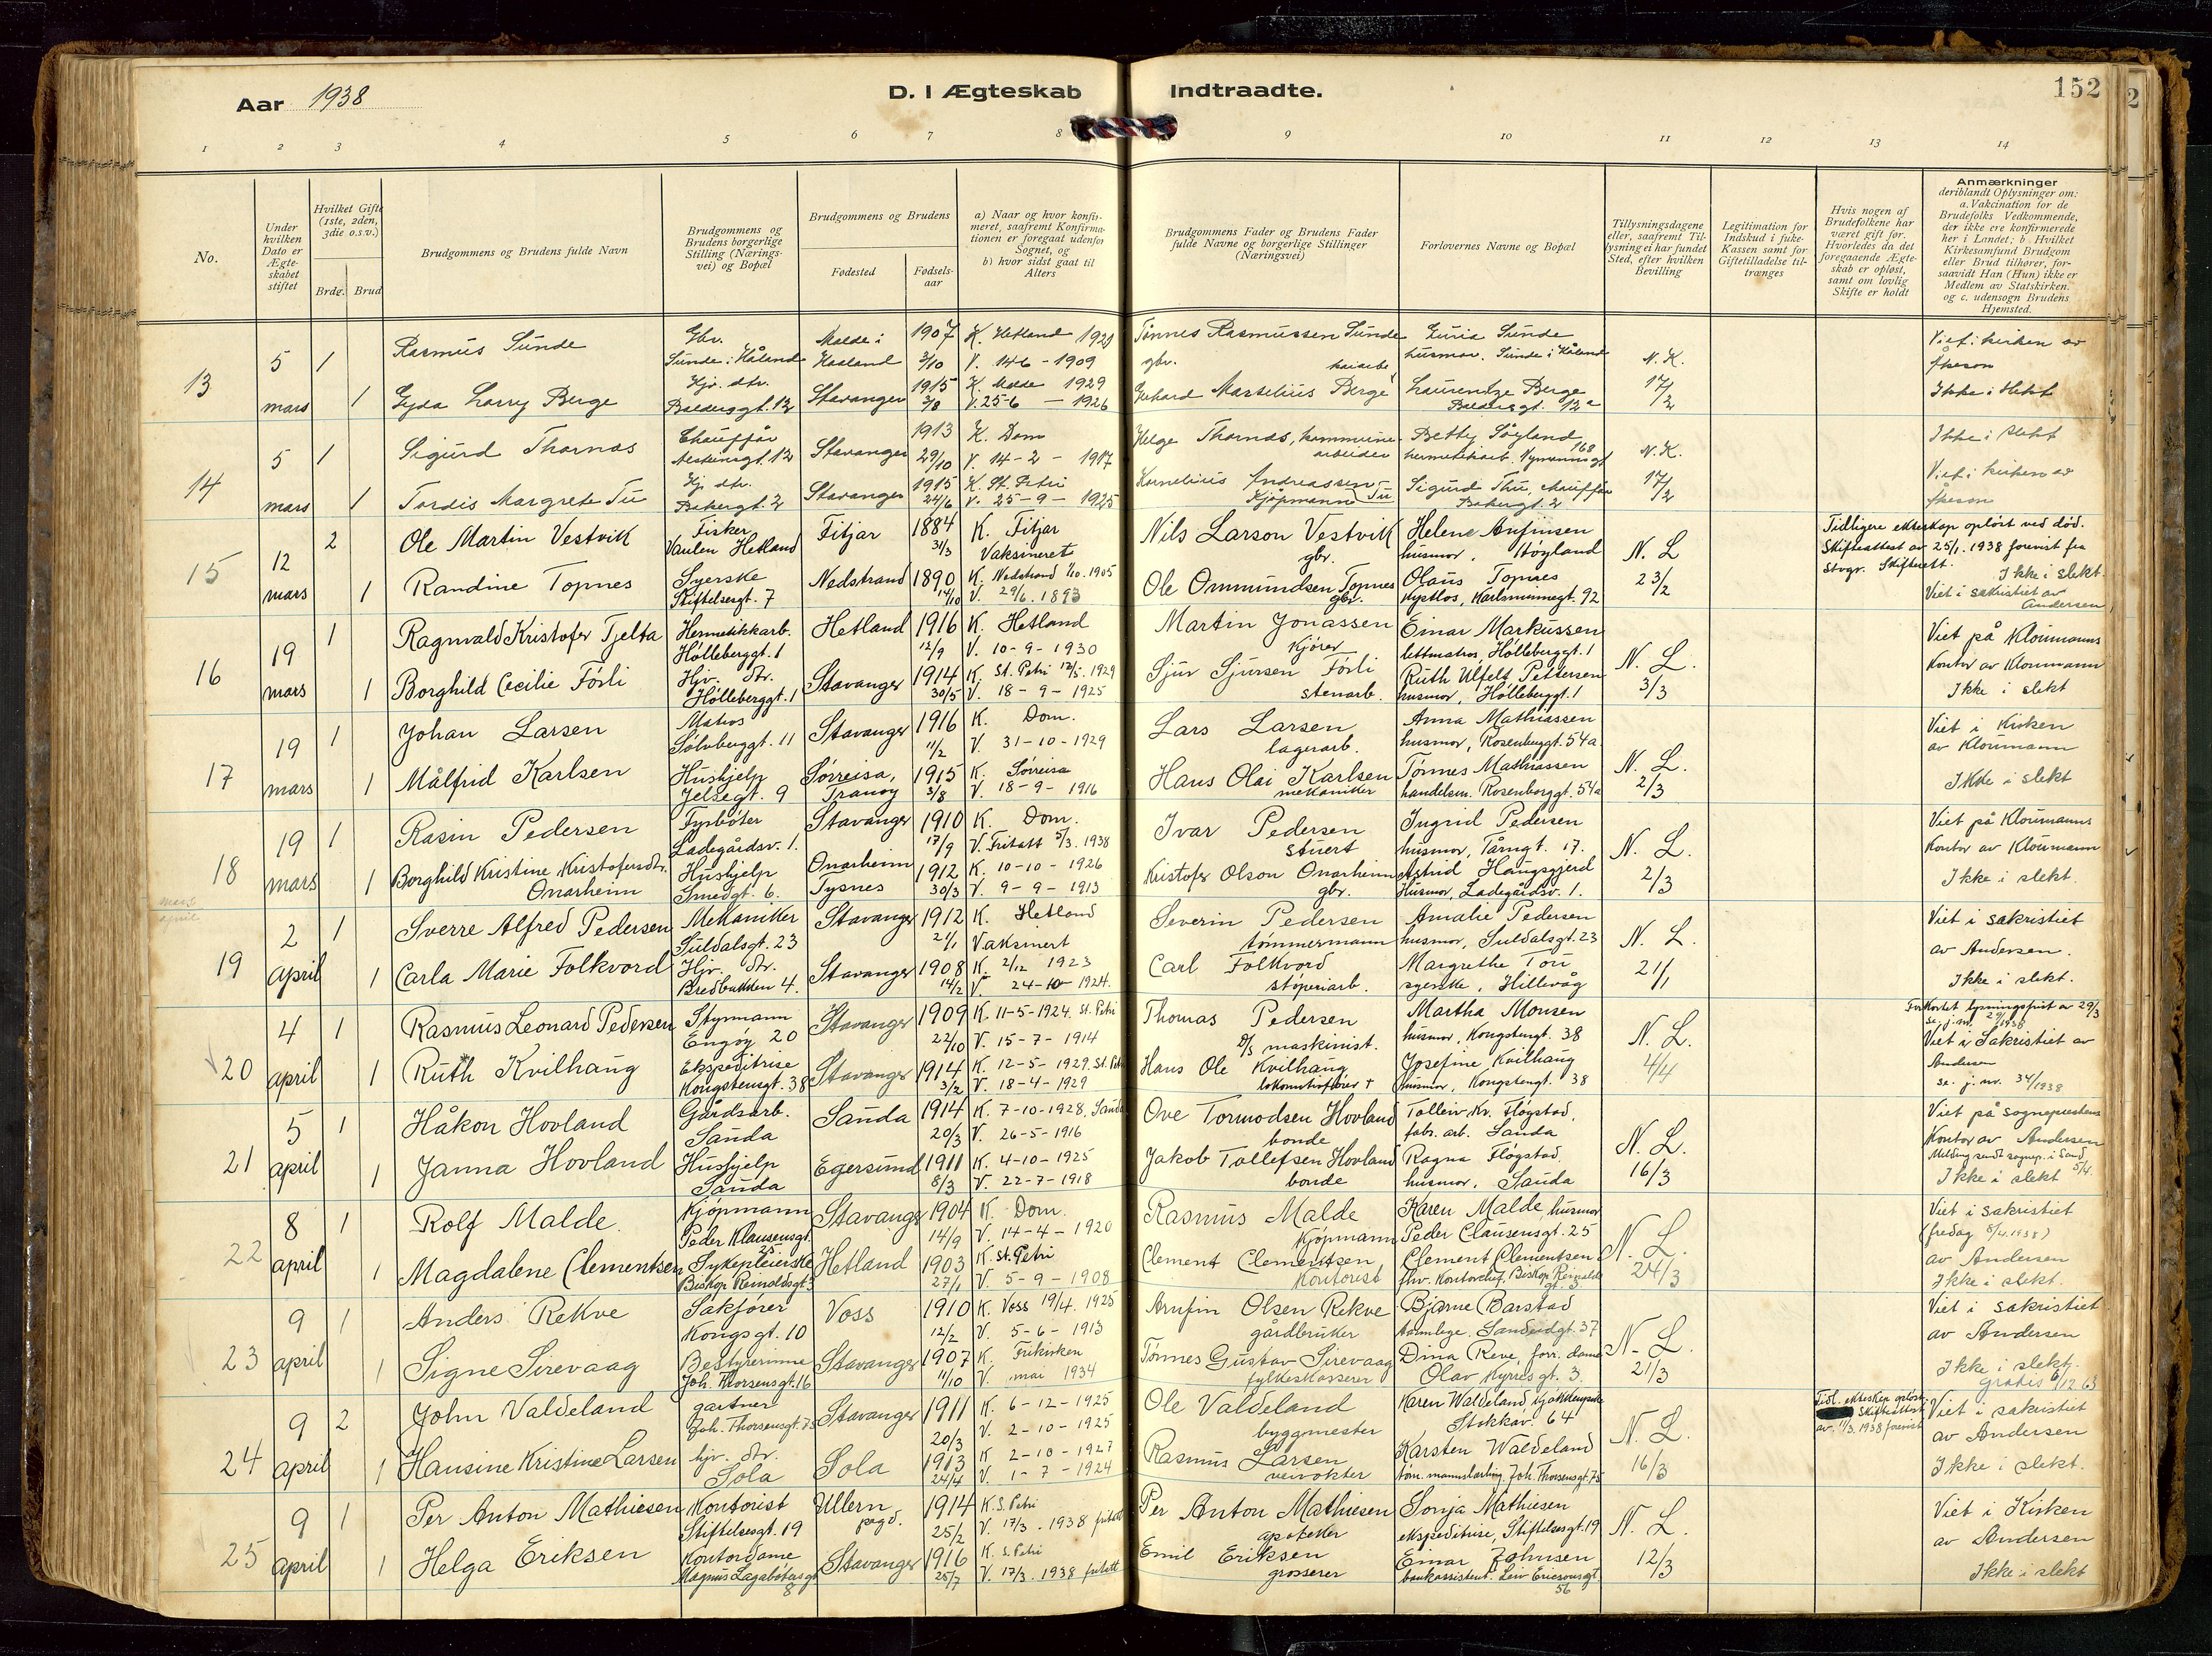 Aar 1938
D. I Ægteskab Indtraadte.
152
2
1 2 3 4 5 6 7 8 9 10 11 12 13 14
No.
Under hvilken Dato er Ægteskabet stiftet
Hvilket Gifte (1ste, 2den, 3die o.s.v.)
Brdg. Brud
Brudgommens og Brudens fulde Navn
Brudgommens og Brudens borgerlige Stilling (Næringsvei) og Bopæl
Brudgommens og Brudens
Fødested
Fødselsaar
a) Naar og hvor konfirmeret, saafremt Konfirmationen er foregaat udenfor Sognet, og
b) hvor sidst gaat til Alters
Brudgommens Fader og Brudens Fader fulde Navne og borgerlige Stillinger (Næringsvei)
Forlovernes Navne og Bopæl
Tillysningsdagene eller, saafremt Tillysning ei har fundet Sted, efter hvilken Bevilling
Legitimation for Indskud i fuke-Kassen samt for Giftetilladelse tiltrænges
Hvis nogen af Brudefolkene har været gift før. Hvorledes da det foregaaende Ægteskab er opløst, samt om lovlig Skifte er holdt
Anmærkninger
deriblandt Oplysninger om: a. Vakcination for de Brudefolks Vedkommende, der ikke ere konfirmerede her i Landet; b. Hvilket Kirkesamfund Brudgom eller Brud tilhører, forsaavidt Han (Hun) ikke er Medlem av Statskirken. og c. udensogn Brudens Hjemsted.
13 5 mars 1 Rasmus Sunde Gbr. Sunde i Håland Malde i Haaland 1907 3/10 K. Hetland 1921 V. 14-6-1909 Tønnes Rasmussen Sunde gbr. Guria Sunde husmor. Sunde i Håland N.K. 17/2 Viet i kirken av
1 Gyda Larry Berge Hjv. dtr. Baldersgt. 12 Stavanger 1915 3/8 K. Molde 1929 V. 25-6-1926 Gerhard Marselius Berge Laurentze Berge Baldersgt. 12a Ikke i slekt
14 5 mars 1 Sigurd Thornas Chauffør 12 Stavanger 1913 29/10 K. Dom V. 14-2-1917 Helge Thornas, kommunearbeider Betty Søyland Nymannsgt 168 N.K. 17/2 Ikke i slekt
1 Tordis Margrete Tu Hj. dtr. Bakergt. 2 Stavanger 1915 24/6 K. St. Petri V. 25-9-1925 Kornelius Andreassen Tu Kjøpmann Sigurd Thu, chauffør Bakergt. 2 Viet i kirken av
15 12 mars 2 Ole Martin Vestvik Fisker Vaulen Hetland Fitjar 1884 31/3 K. Fitjar Vaksineret Nils Larson Vestvik gbr. Helene Anfinsen husmor, Høyland N. L 23/2 Tidligere ekteskap opløst ved død. Skifteattest av 25/1. 1938 forevist fra Stvgr. Skifterett. Ikke i slekt.
1 Randine Topnes Syerske Stiftelsesgt. 7 Nedstrand 1890 14/10 K. Nedstrand 1/10.1905 V. 29/6. 1893 Ole Ommundsen Topnes gbr. Olaus Topnes yrkesløs, Karlsminnegt. 92 Viet i sakristiet av Andersen
16 19 mars 1 Ragnvald Kristofer Tjelta Hermetikkarb. Hølleberggt. 1 Hetland 1916 12/9 K. Hetland V. 10-9-1930 Martin Jonassen Kjører Einar Markussen lettmatros, Hølleberggt. 1 N. L. 3/3 Viet på Kloumanns Kontor av Kloumann
1 Borghild Cecilie Førli Hjv. dtr. Hølleberggt. 1 Stavanger 1914 30/5 K. St. Petri 12/5. 1929 V. 18-9-1925 Sjur Sjursen Førli stenarb. Ruth Ulfelt Pettersen husmor, Hølleberggt. 1 Ikke i slekt
17 19 mars 1 Johan Larsen Matros Sølvberggt. 11 Stavanger 1916 11/2 K. Dom. V. 31-10-1929 Lars Larsen lagerarb. Anna Mathiassen husmor, Rosenberggt. 54a N. L. 2/3 Viet i Kirken av Kloumann
1 Målfrid Karlsen Hushjelp Jelsegt. 9 Sørreisa, Tranøy 1915 3/8 K. Sørreisa V. 18-9-1916 Hans Olai Karlsen mekaniker Tønnes Mathiassen handelsm. Rosenberggt. 54a Ikke i slekt
18 19 mars 1 Rasin Pedersen Fyrbøter Ladegårdsv. 1. Stavanger 1910 17/9 K. Dom. V. Fritatt 5/3. 1938 Ivar Pedersen stuert Ingrid Pedersen husmor, Tårngt. 17. N. L. 2/3 Viet på Kloumanns Kontor av Kloumann
1 Borghild Kristine Kristofersdtr. Onarheim Hushjelp Smedgt. 6. Onarheim Tysnes 1912 30/3 K. 10-10-1926 V. 9-9-1913 Kristofer Olson Onarheim gbr. Astrid Haugsgjerd Husmor, Ladegårdsv. 1. Ikke i slekt.
mars
april
19 2 april 1 Sverre Alfred Pedersen Mekaniker Suldalsgt. 23 Stavanger 1912 21/1 K. Hetland Vaksinert Severin Pedersen tømmermann Amalie Pedersen husmor, Suldalsgt. 23 N. L. 21/1 Viet i sakristiet av Andersen.
1 Carla Marie Folkvord Hjv. dtr. Bredbakken 4. Stavanger 1908 14/2 K. 2/12 1923 V. 24-10-1924. Carl Folkvord støperiarb. Margrethe Tou syerske, Hillevåg Ikke i slekt.
20 4 april 1 Rasmus Leonard Pedersen Styrmann Engøy 20 Stavanger 1909 22/10 K. 11-5-1924. St. Petri V. 15-7-1914 Thomas Pedersen D/S maskinist. Martha Monsen husmor, Kongstensgt. 38 N. L. 4/4 Forkortet lysningsfrist av 29/3 se. j. nr. 29/1938 Viet i Sakristiet av Andersen se. j. nr. 34/1938
1 Ruth Kvilhaug Ekspeditrise Kongstensgt. 38 Stavanger 1914 3/2 K. 12-5-1929. St. Petri V. 18-4-1929 Hans Ole Kvilhaug lokomotivfører + Josefine Kvilhaug husmor, Kongstengt. 38
21 5 april 1 Håkon Hovland Gårdsarb. Sauda Sauda 1914 20/3 K. 7-10-1928. Sauda V. 26-5-1916 Ove Tormodsen Hovland bonde Tolleiv Kr. Fløgstad, fabr. arb. Sauda N. L. 16/3 Viet på sogneprestens Kontor av Andersen Melding sendt sognep. i Sand 5/4.
1 Janna Hovland Hushjelp Sauda Egersund 1911 8/3 K. 4-10-1925 V. 22-7-1918 Jakob Tollefsen Hovland bonde Ragna Fløgstad, husmor, Sauda Ikke i slekt
22 8 april 1 Rolf Malde. Kjøpmann Peder Klausensgt. 25 Stavanger 1904 14/9 K. Dom. V. 14-4-1920 Rasmus Malde Kjøpmann Karen Malde husmor Peder Clausensgt. 25 N. L. 24/3 Viet i sakristiet (fredag 8/4.1938) av Andersen
1 Magdalene Clementsen Sykepleierske Biskop Reinaldsgt. 3 Hetland 1903 27/1 K. St. Petri V. 5-9-1908 Clement Clementsen Kontorist Clement Clementsen fhv. Kontorchef, Biskop Reinaldsgt. 3 Ikke i slekt.
23 9 april 1 Anders Rekve Sakfører Kongsgt. 10 Voss 1910 12/2 K. Voss 19/4. 1925 V. 5-6-1913 Arnfin Olsen Rekve gårdbruker Bjarne Barstad tannlege. Sandeidgt. 37 N. L. 21/3 Viet i sakristiet av Andersen
1 Signe Sirevaag Bestyrerinne Joh. Thorsensgt. 16 Stavanger 1907 11/10 K. Frikirken V. mai 1934 Tønnes Gustav Sirevaag fylkeskasserer Dina Reve, forr. dame Olav Kyrres gt. 3. Ikke i slekt. Gratis 6/12.63
24 9 april 2 John Valdeland gartner Joh. Thorsensgt. 75 Stavanger 1911 20/3 K. 6-12-1925 V. 2-10-1925 Ole Valdeland byggmester Karen Waldeland Stokkav. 64 N. L. 16/3 Tidl. ekteskap opløst Skifteattest av. 11/3. 1938 forevist Viet i sakristiet av Andersen
1 Hansine Kristine Larsen hjv. dtr. Sola Sola 1913 24/4 K 2-10-1927 V. 1-7-1924 Rasmus Larsen veivokter Karsten Waldeland tøm. mannslærling, Joh. Thorsensgt. 75 Ikke i slekt.
25 9 april 1 Per Anton Mathiesen Kontorist Stiftelsesgt. 19 Ullern pgd. 1914 25/2 K. S. Petri V. 17/3. 1938 fritatt Per Anton Mathiesen apoteker Sonja Mathiesen ekspeditrise, Stiftelsesgt. 19 N. L. 12/3 Viet i Kirken av Andersen
1 Helga Eriksen Kontordame Magnus Lagabøtersgt 8 Stavanger 1916 25/7 K. S. Petri V. 17/3. 1938 fritatt Emil Eriksen grosserer Einar Johnsen bankassistent. Leiv Ericsonsgt. 56 Ikke i slekt